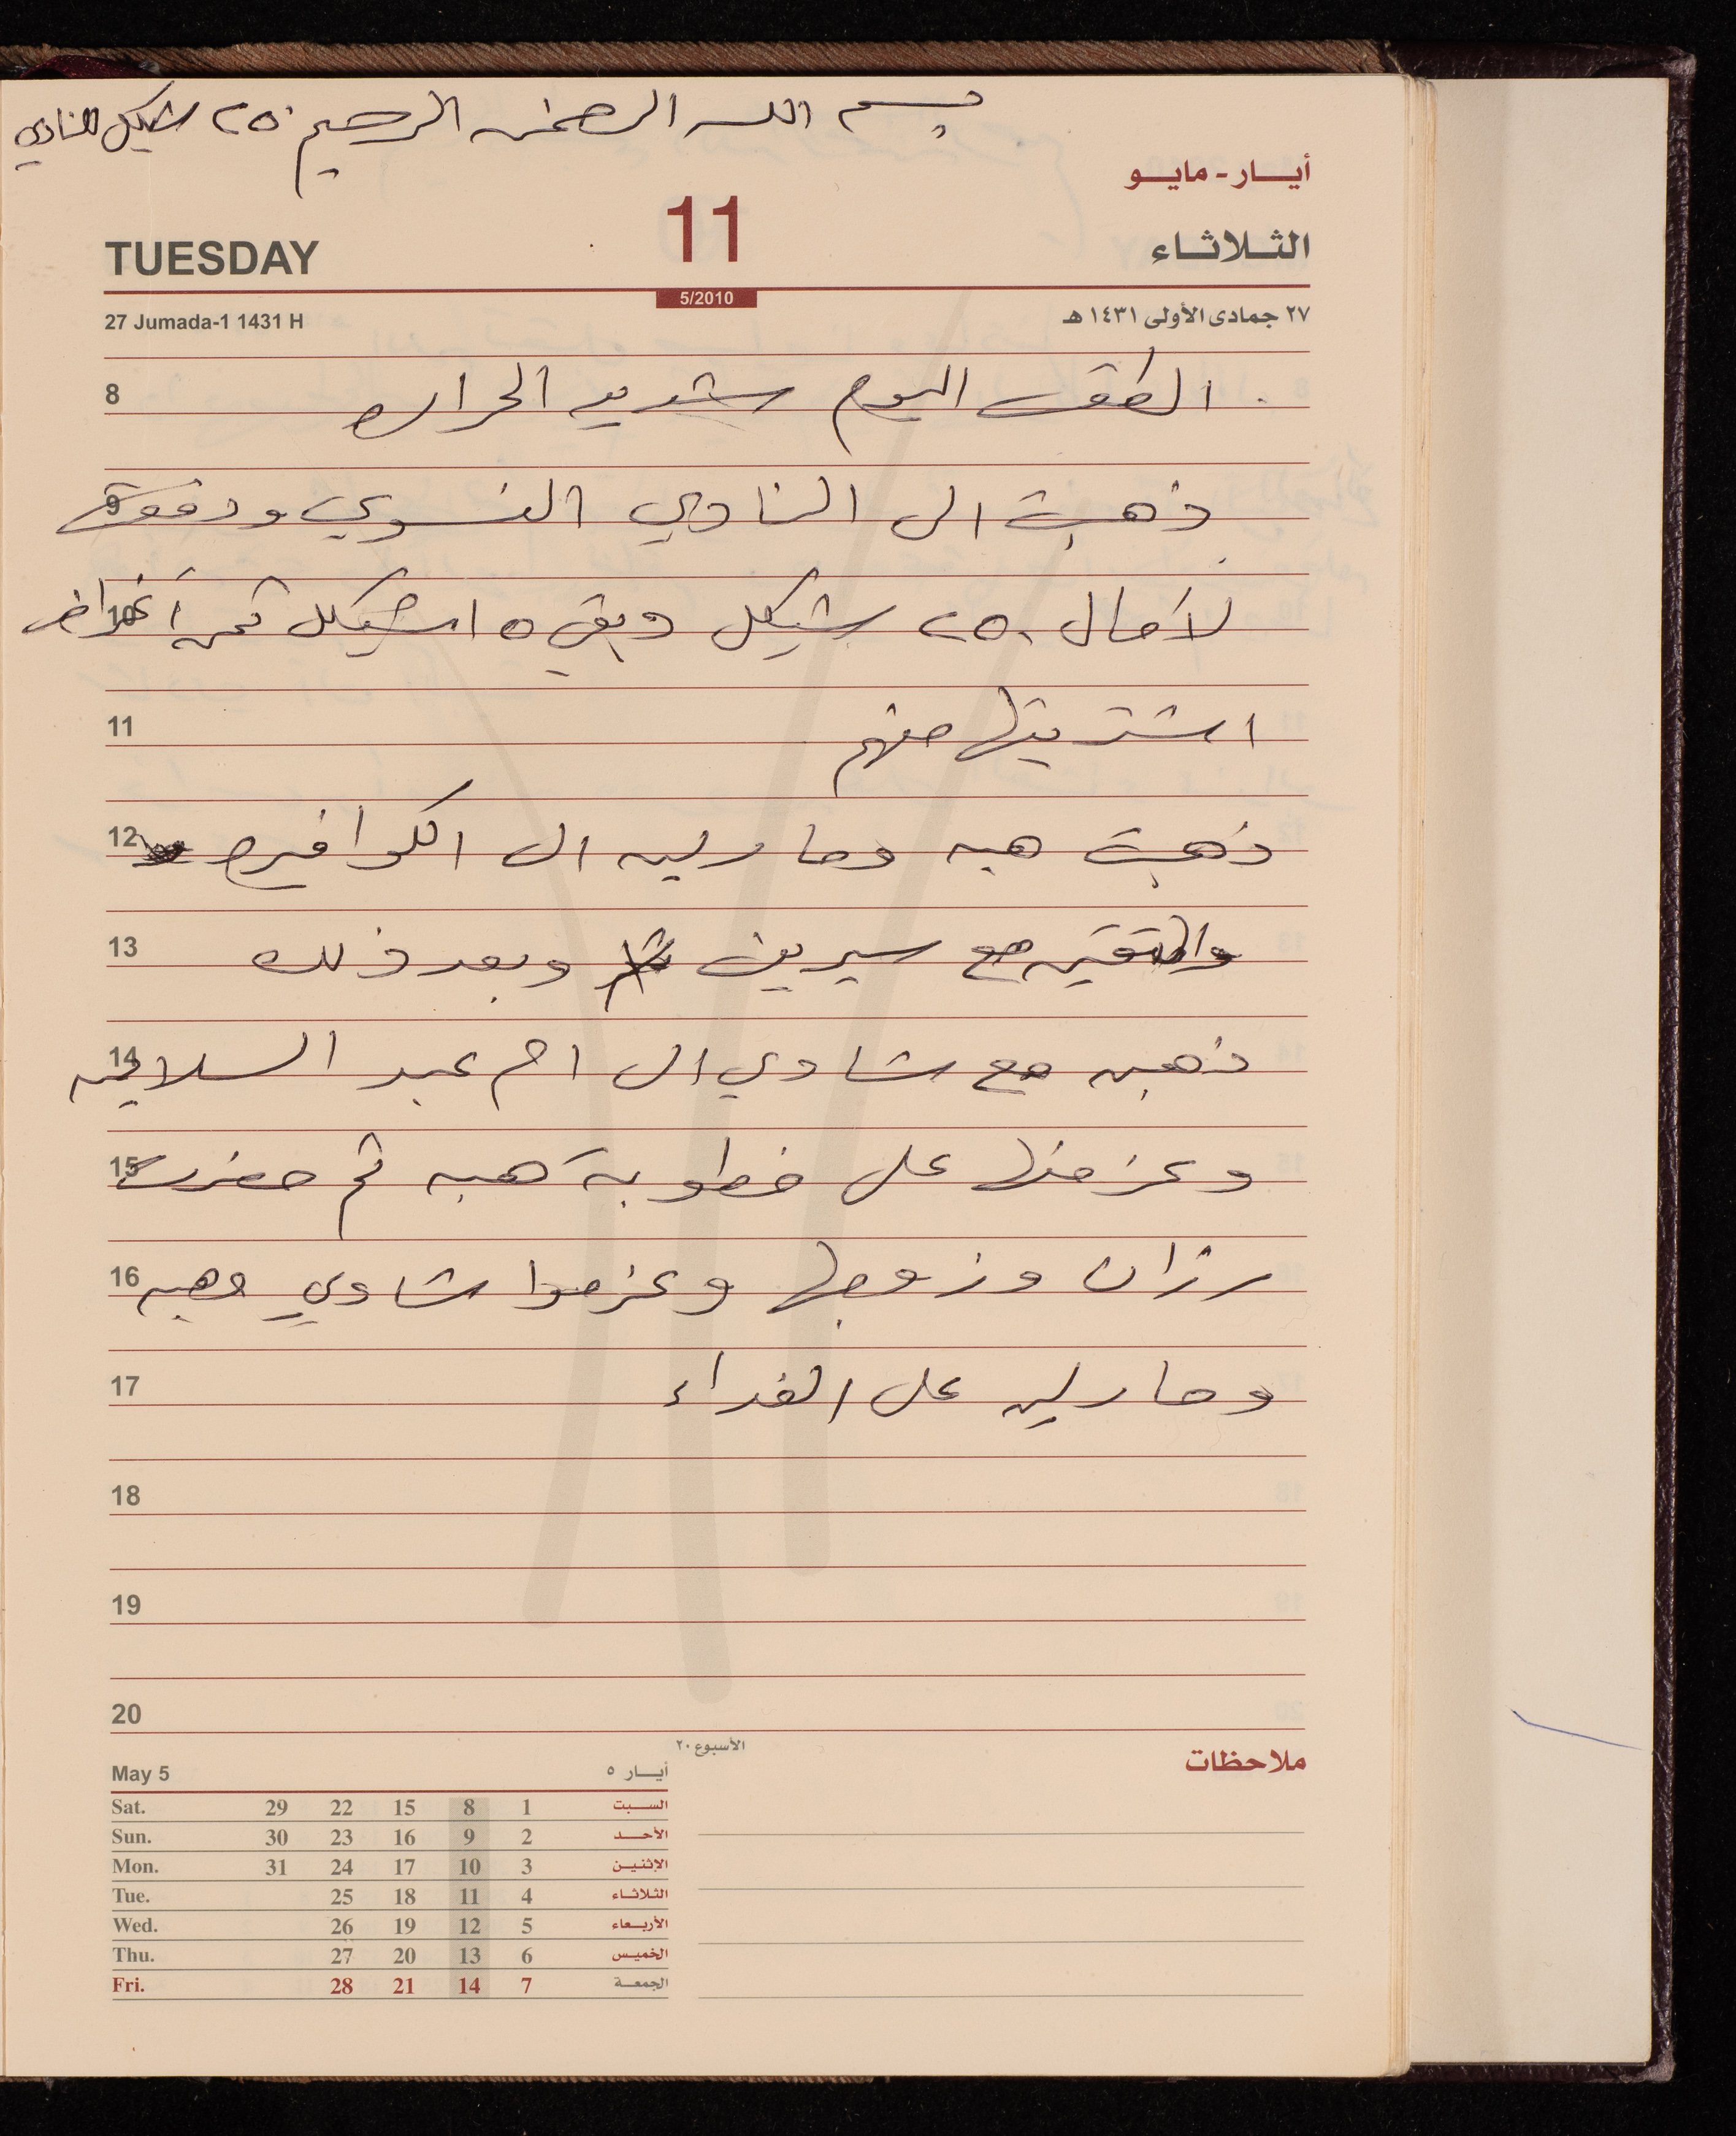 بسم الله الرحمن الرحيم ٢٥٠ شيكل للنادي
أيـــار - مايـــو
11
TUESDAY
الثـلاثـاء
5/2010
27 Jumada-1 1431 H
٢٧ جمادى الأولى ١٤٣١ هـ
8 الطقس اليوم شديد الحراره
9 ذهبت الى النادي النسوي ودفعت
10 لآمال ٢٥٠ شيكل وبقي ١٥ شيكل ثمن أغراض
11 اشتريتها منهم
12 ذهبت هبه ومارلين الى الكوافيره
13 والتقين مع سيرين وبعد ذلك
14 ذهبن مع شادي الى ام عبد السلايمه
15 وعزمنها على خطوبة هبه ثم حضرت
16 رزان وزوجها وعزموا شادي وهبه
17 ومارلين على الغداء
18
19
20
الأسبوع ٢٠
ملاحظات
May 5 أيـــار ٥
Sat. 29 22 15 8 1 السبت
Sun. 30 23 16 9 2 الأحد
Mon. 31 24 17 10 3 الإثنين
Tue. 25 18 11 4 الثلاثاء
Wed. 26 19 12 5 الأربعاء
Thu. 27 20 13 6 الخميس
Fri. 28 21 14 7 الجمعة